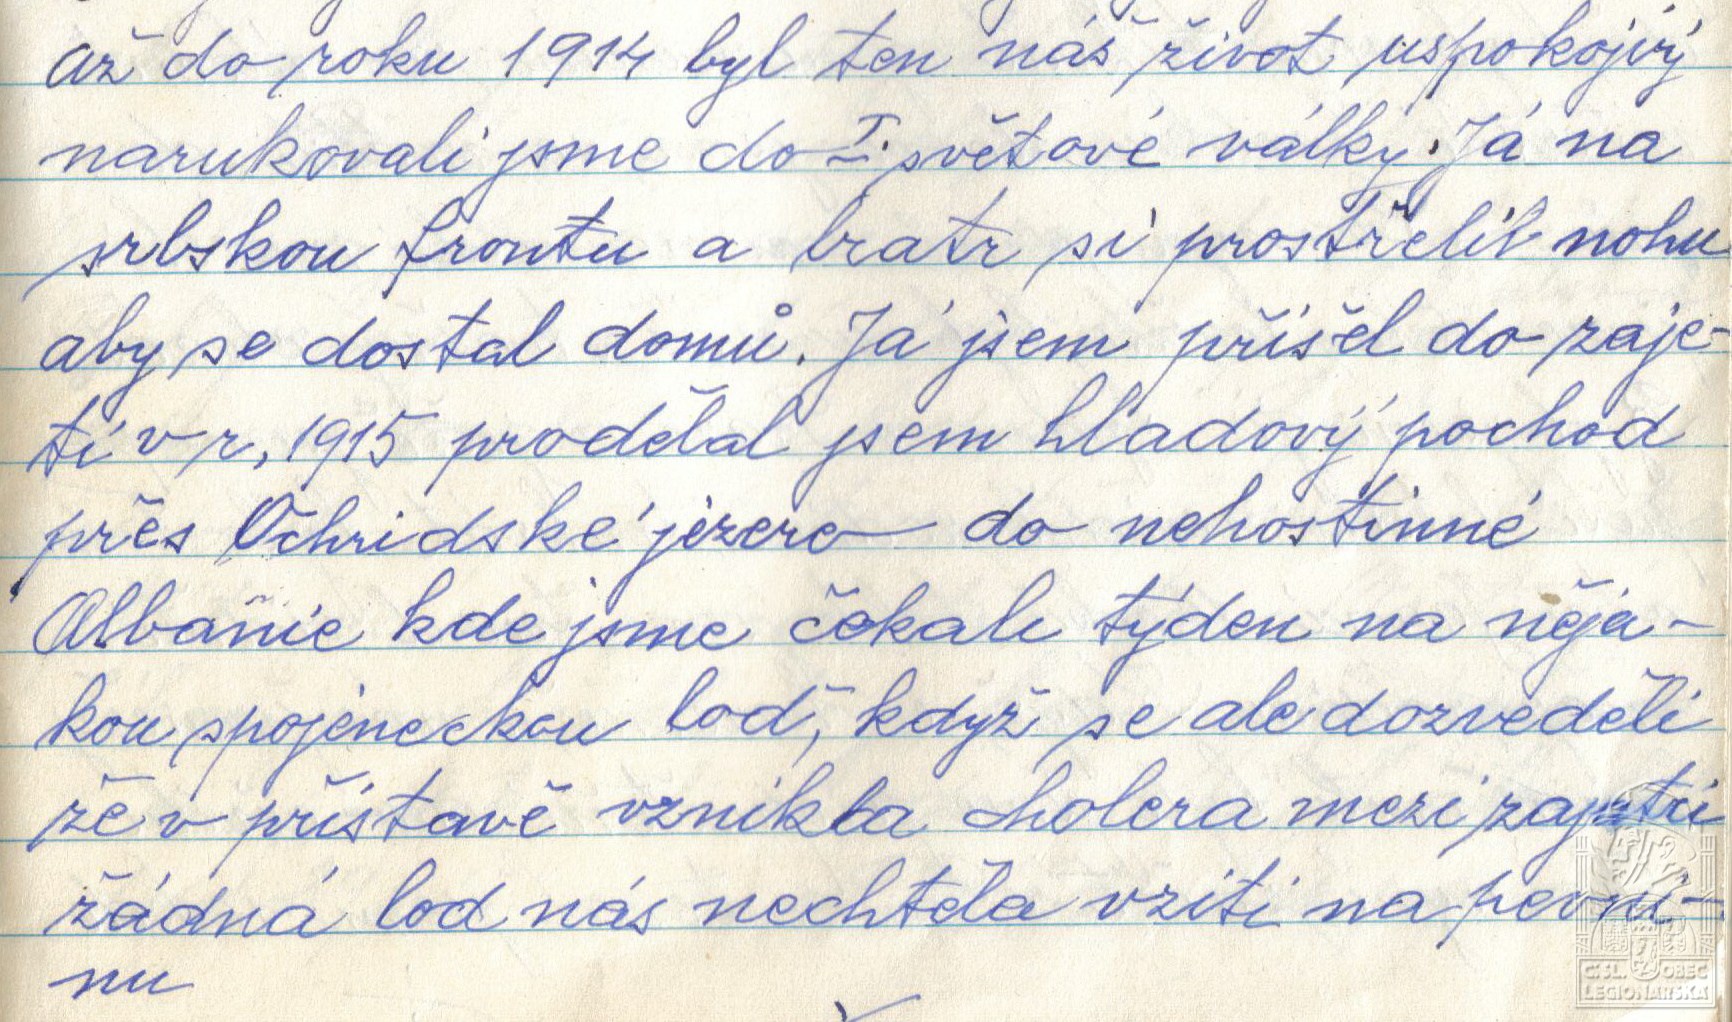 až do roku 1914 byl ten náš život uspokojivý
narukovali jsme do I. světové války. Já na
srbskou frontu a bratr si prostřelil nohu
aby se dostal domů. Já jsem přišel do zaje-
tí v r, 1915 prodělal jsem hladový pochod
přes Ochridské jezero do nehostinné
Albanie kde jsme čekali týden na něja-
kou spojeneckou loď, když se ale dozveděli
že v přístavě vznikla cholera mezi zajatci
žádná lod nás nechtěla vziti na pevni-
nu
ČSL. OBEC
LEGIONÁŘSKÁ